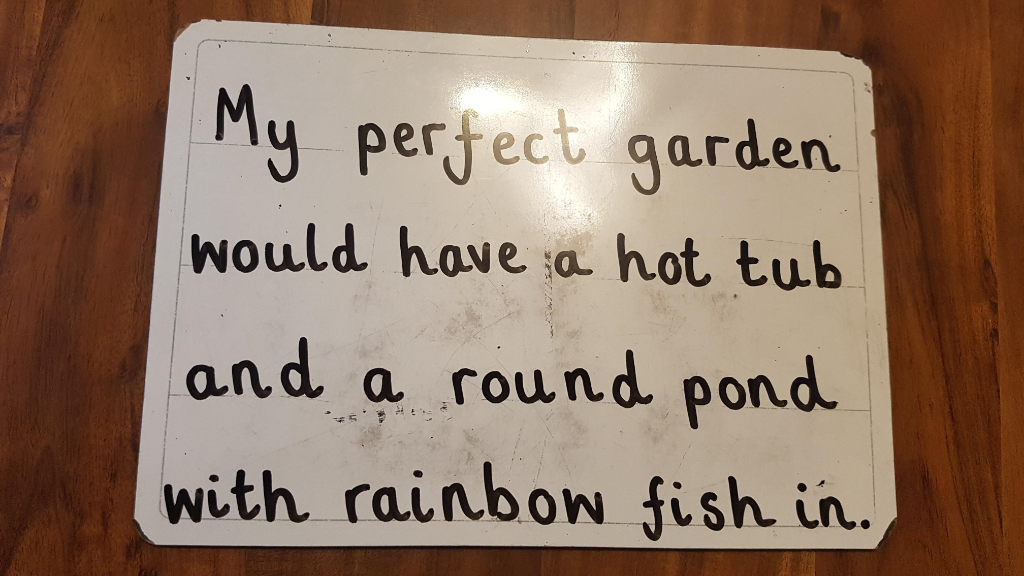 My perfect garden
would have a hot tub
and a round pond
with rainbow fish in.